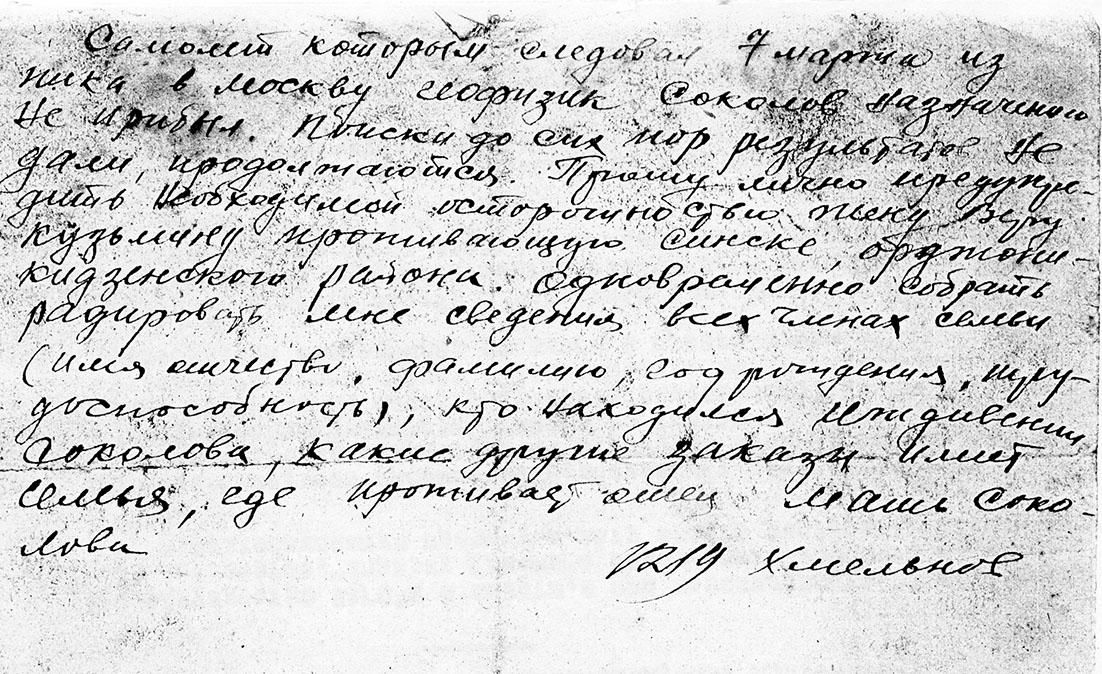 Самолет которым следовал 7 марта из
ника в Москву геофизик Соколов назначению
не прибыл. Поиски до сих пор результатов не
дали, продолжаются. Прошу лично предупре-
дить необходимой осторожностью жену Веру
Кузьмину проживающую Синске, орджони-
кидзенского района. Одновременно собрать
радировать мне сведения всех членах семьи
(имя отчество, фамилию, год рождения, тру-
доспособность), кто находился иждивении
Соколова, какие другие заказы имеет
семья, где проживает отец мать Соко-
лова
1219 Хмельнов